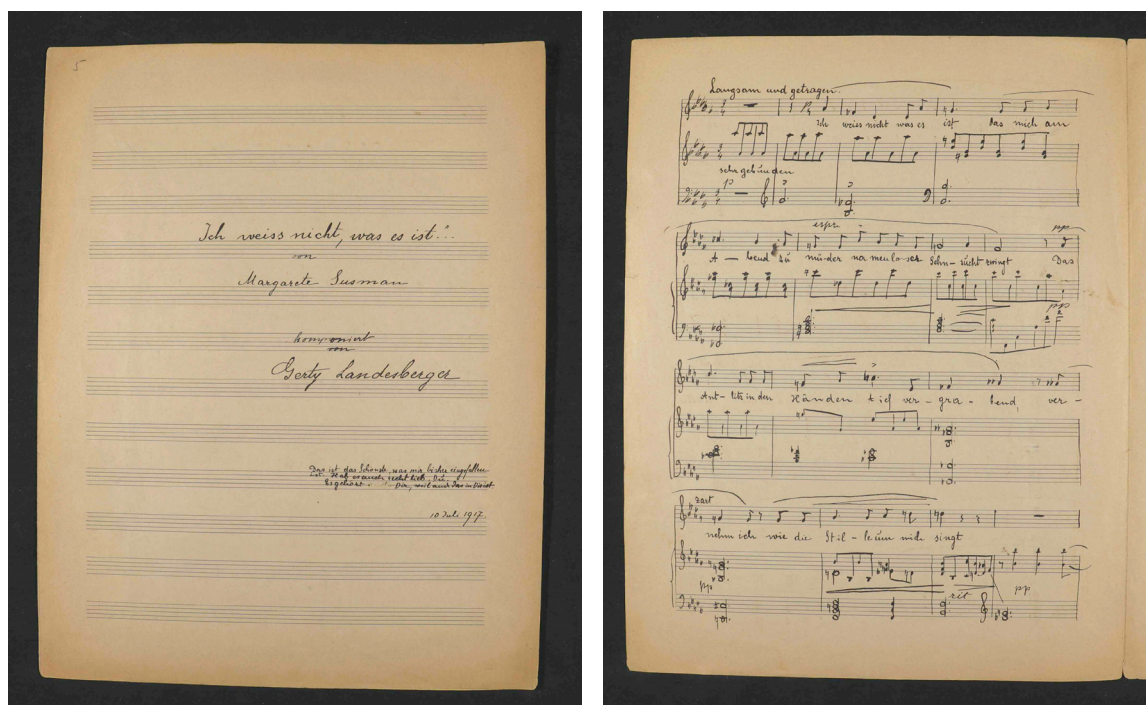 5
Ich weiss nicht, was es ist."..
von
Margarete Susman
komponiert
von
Gerty Landesberger
Das ist das Schönste, was mir bisher eingefallen
ist. Hab es auch recht lieb, Du.
Es gehört Dir, weil auch Das in Dir ist.
10 Juli 1917.
Langsam und getragen.
Ich weiss nicht was es ist das mich am
sehr gebunden
p
espr. pp
A - bend zu mü-der na menlo-ser Sehn-sucht zwingt Das
pp
Ant-litz in den Händen tief ver-gra-bend, ver-
zart
nehm ich wie die Stil-le um mich singt
pp rit pp